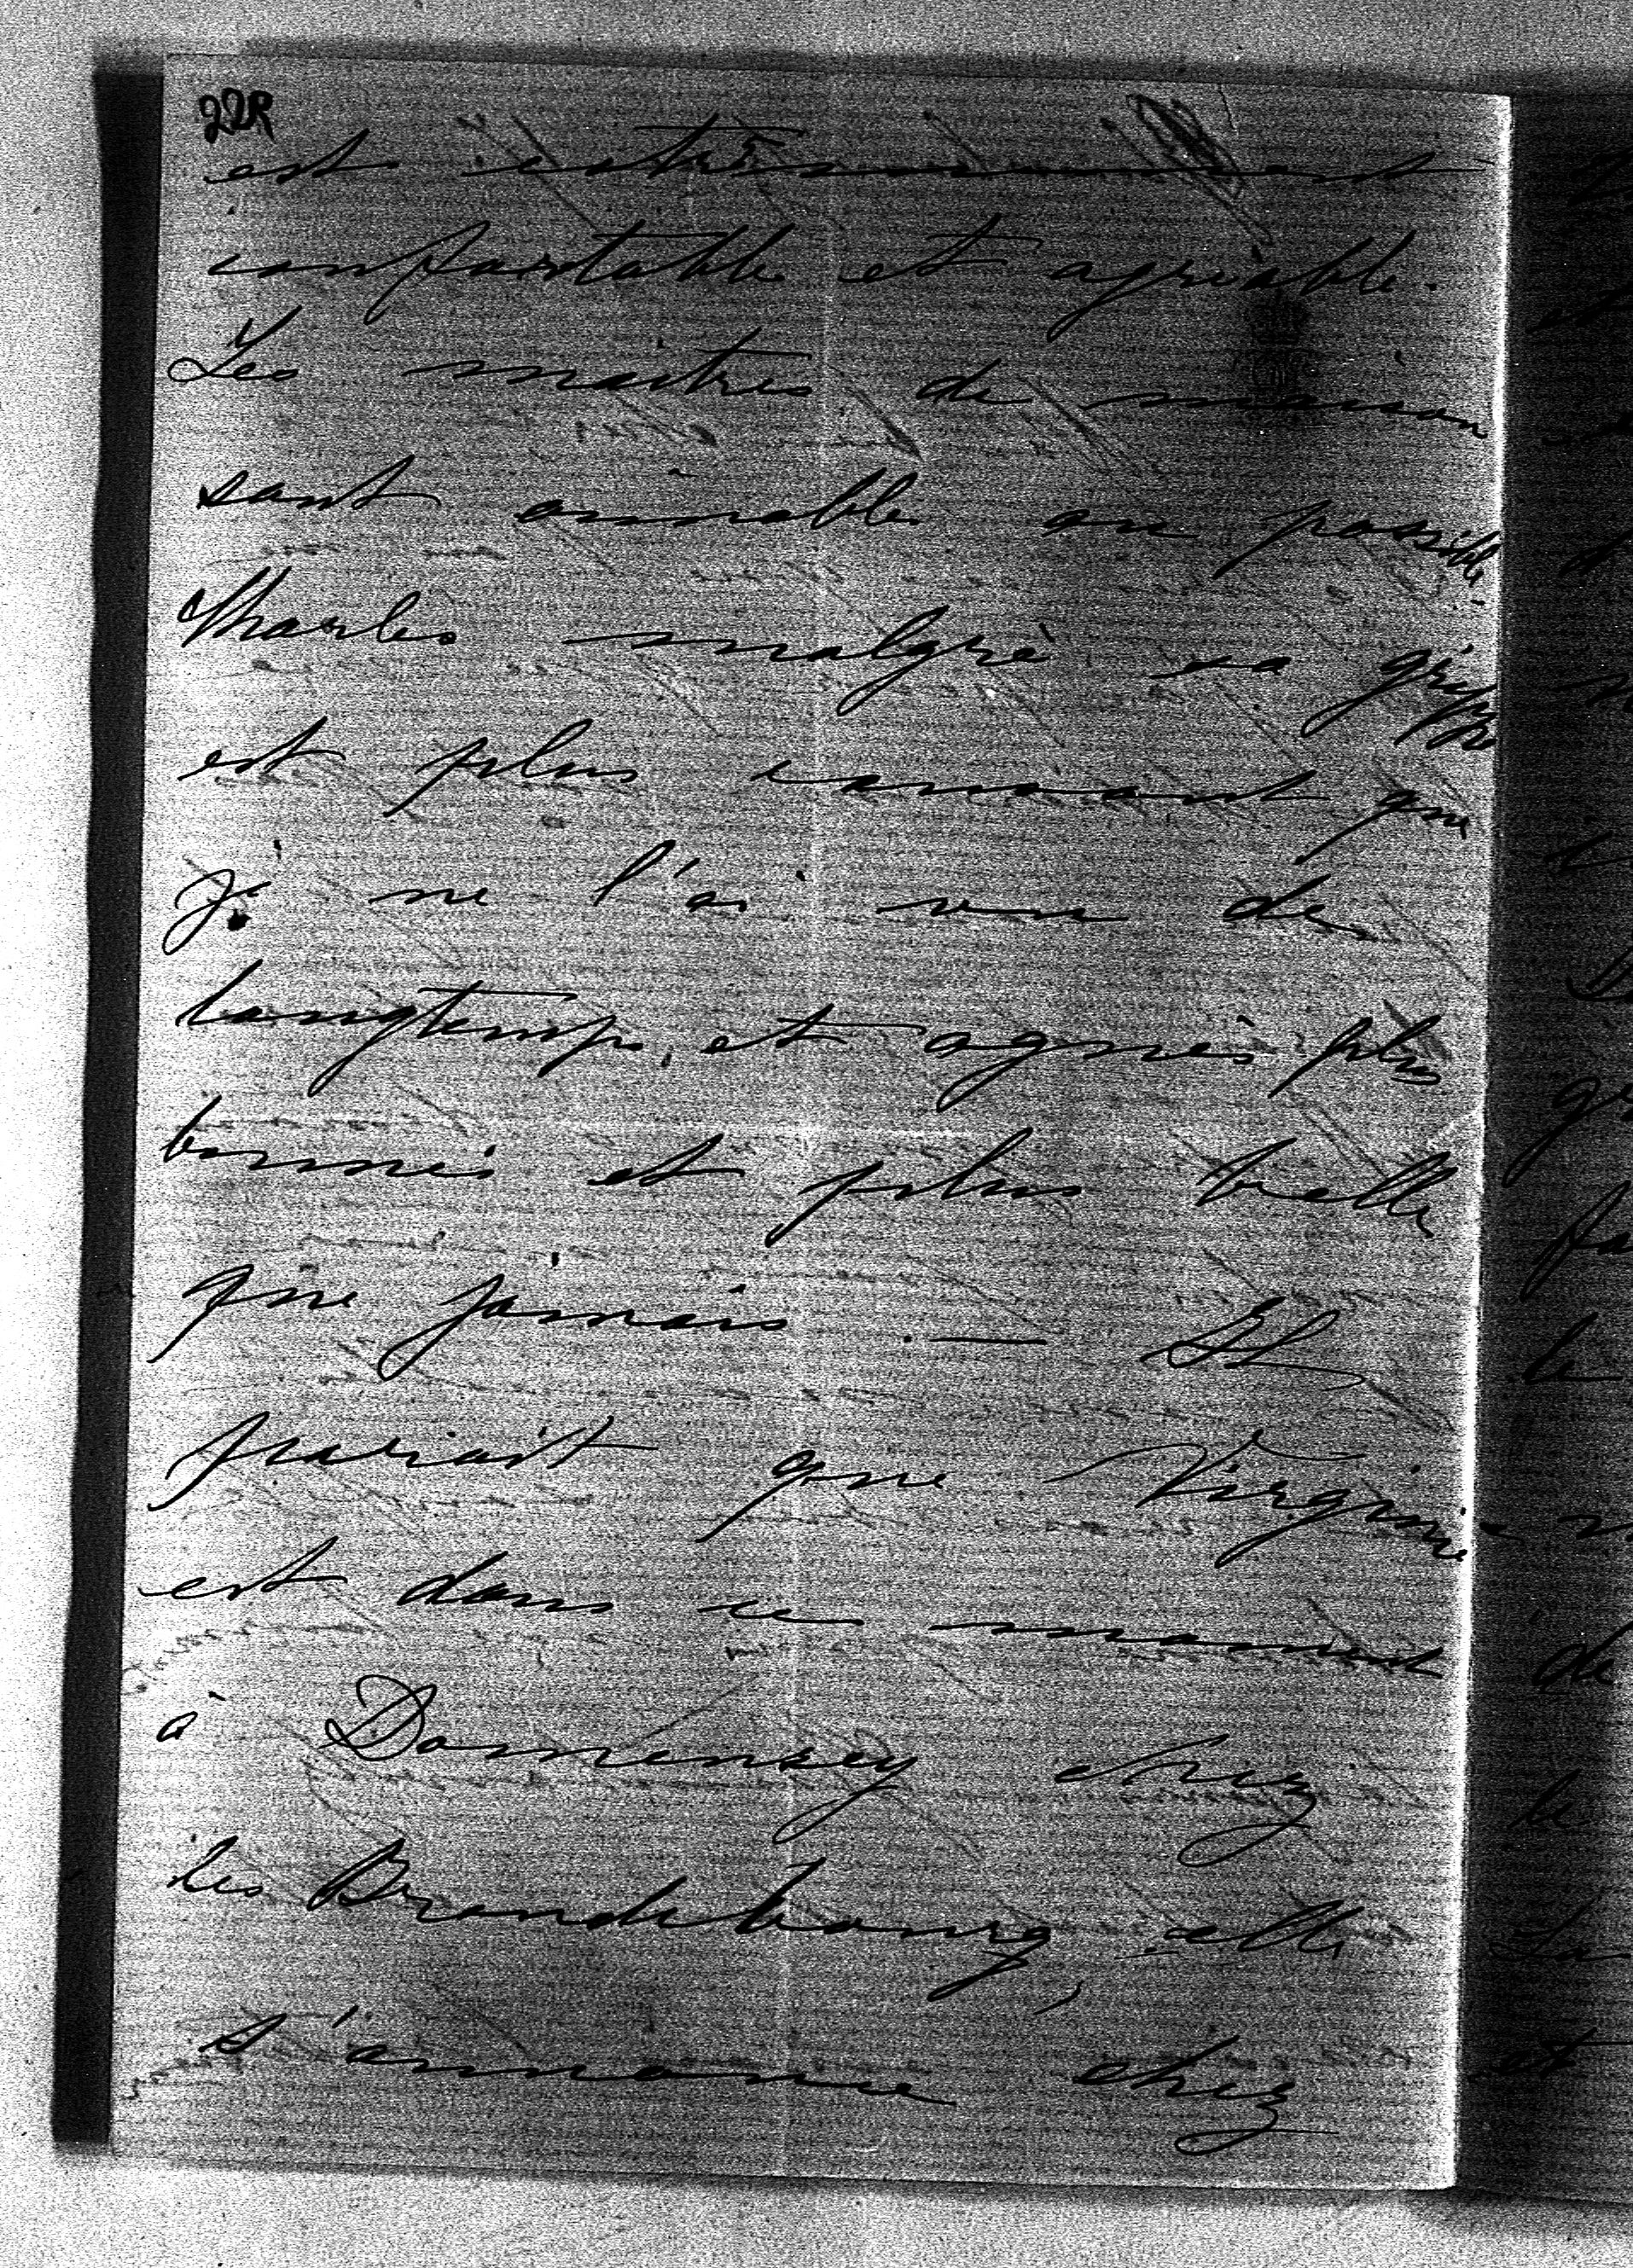 22R
est extrêmement
confortable et agréable.
Les maîtres de maison
sont aimable au possible
Charles malgré sa grippe
est plus causant que
je ne l'ai vu de
longtemps, et agnès plus
bonnes et plus belle
que jamais. — Il
parait que Virginie
est dans ce moment
à Domensey chez
les Brandebourg, elle
s'annonce chez